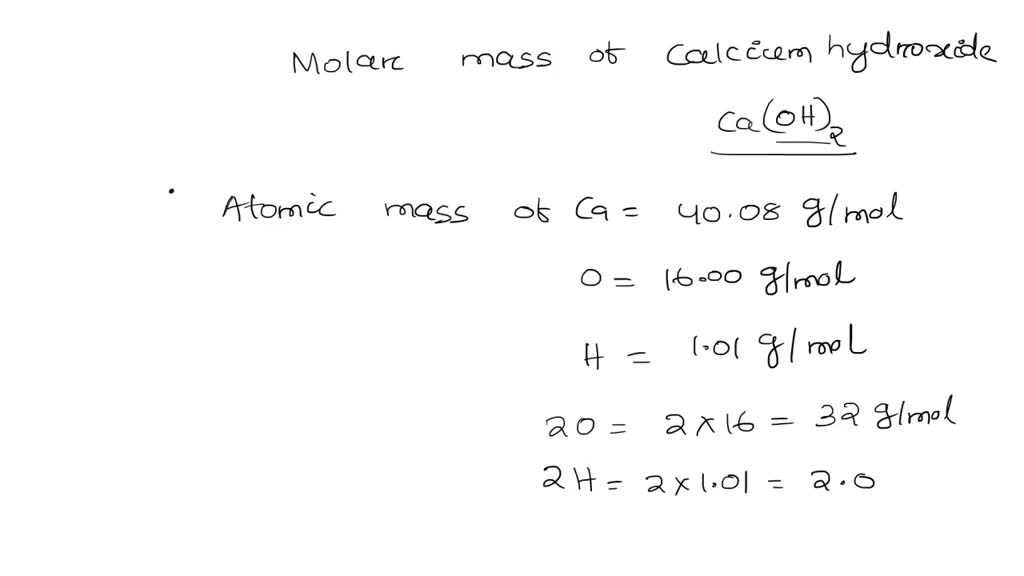 Molarc mass of calcium hydroxide
Ca(OH)2
Atomic mass of Ca = 40.08 g/mol
O = 16.00 g/mol
H = 1.01 g/mol
2O = 2×16 = 32 g/mol
2H = 2×1.01 = 2.0